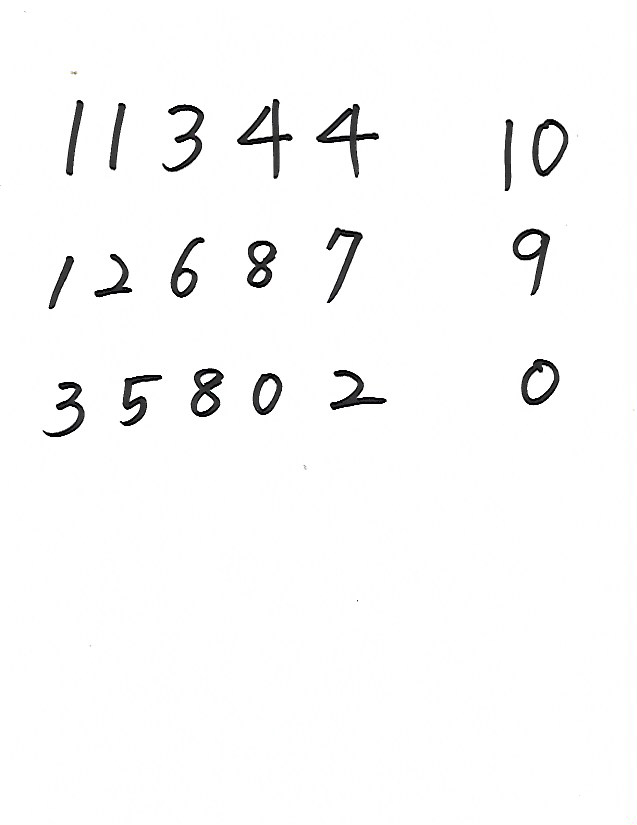 11344 10
12687 9
35802 0